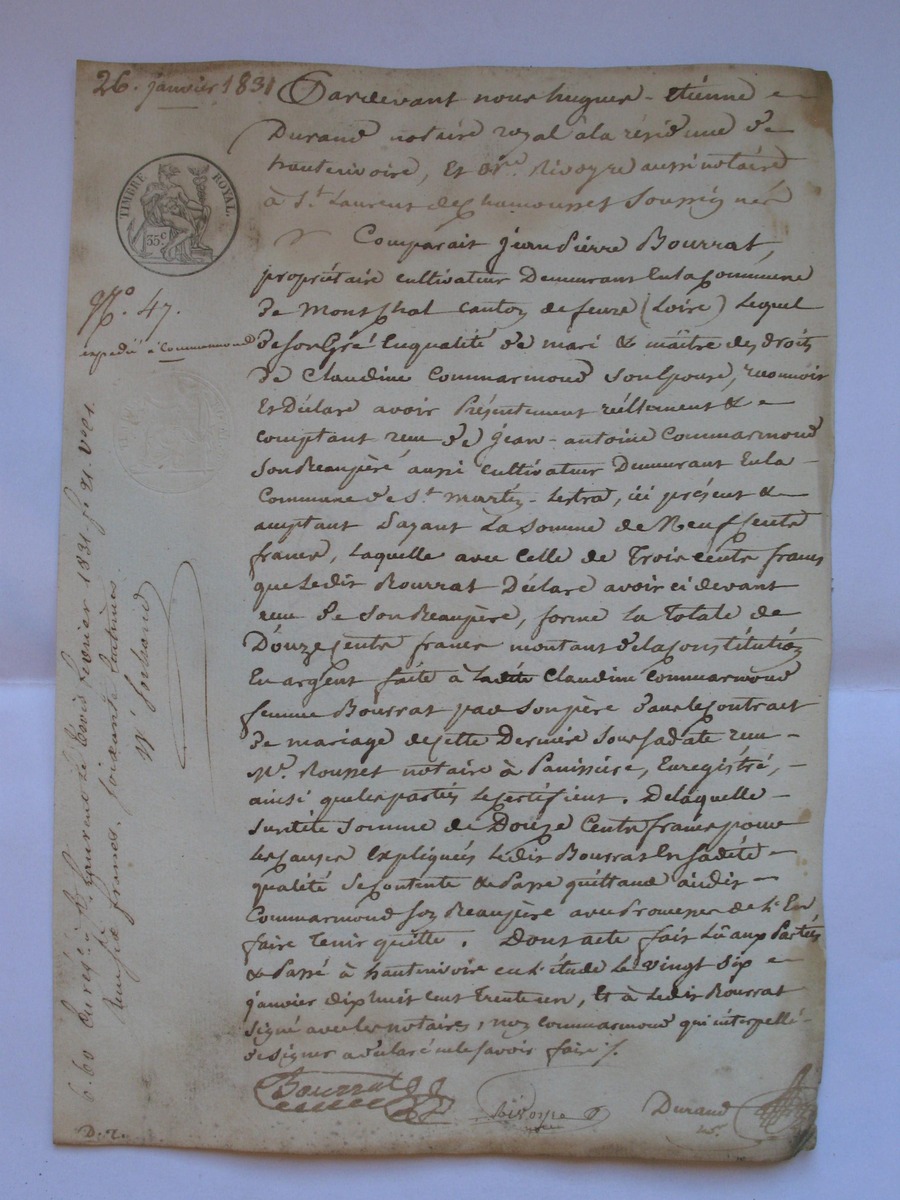 26. janvier 1831
Pardevant nous hugues-étienne
Durand notaire royal à la résidence de
hauterivoire, Et Me. Rivoyre aussi notaire
à St. Laurent de chamousset Soussignés
TIMBRE ROYAL.
35c
Comparait jean Pierre Bourrat,
propriétaire cultivateur Demeurant En la Commune
de Montchal canton de feurs (Loire) Lequel
de Son Gré En qualité de mari & maître des droits
de Claudine Commarmond Son Epouse, reconnoit
Et Déclare avoir Présentement réellement &
comptant reçu de jean-antoine Commarmond
Son Beaupère, aussi cultivateur Demeurant En la
Commune de St. martin-Lestra, ici présent &
acceptant Payant La Somme de Neuf Cents
francs, Laquelle avec Celle de Trois cents francs
que Ledit Bourrat Déclare avoir ci devant
reçu de Son Beaupère, forme la Totale de
Douze Cents francs montant de la Constitution
En argent faite à Ladite Claudine Commarmond
femme Bourrat par Son père dans le Contrait
de mariage de Cette Dernière Sous Sa date reçu
Me. Rousset notaire à Panissière, Enregistré,
ainsi que les parties Le Certifient. De Laquelle
Susdite Somme de Douze Cents francs pour
Les causes Expliquées Ledit Bourrat En Sadite
qualité Se Contente & Passe quittance audit
Commarmond Son Beaupère avec Promesse de L'En
faire Tenir quitte. Dont acte fait Lû aux Parties
& Passé à hauterivoire en L'étude Le vingt Six
janvier dix huit cent Trente un, Et à Ledit Bourrat
Signé avec Les notaires, non Commarmond qui interpellé
de Signer a déclaré ne le Savoir faire ./.
Bourrat
Rivoyre
Durand
No. 47.
expédié à Commarmond
Enreg. à St. Laurent le trois février 1831. fo. 21. Vo.
Reçu six francs soixante centimes.
6.60
D. R.